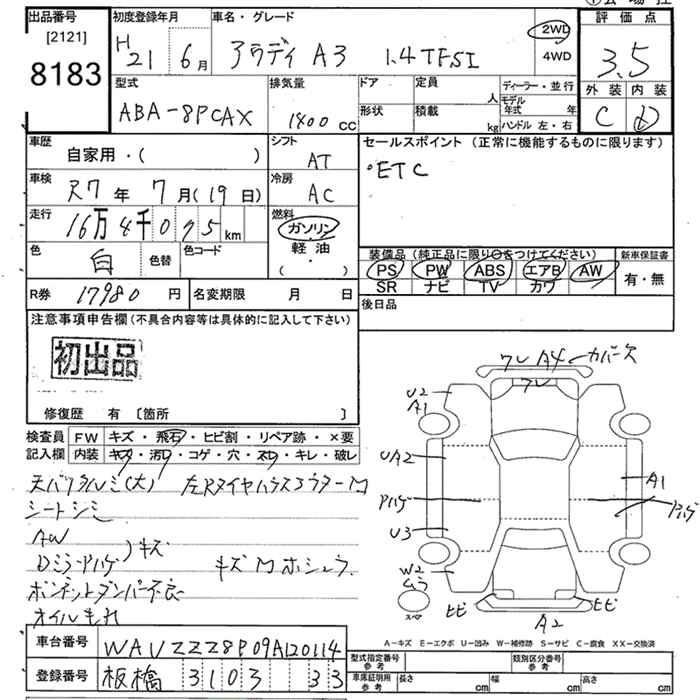 出品番号 [2121] 8183
初度登録年月 H 21 6月
車名・グレード アウディ A3 1.4TFSI
2WD 4WD
評価点 3.5
外装 C 内装 D
型式 ABA-8PCAX
排気量 1400 cc
ドア 形状
定員 人 積載 kg
ディーラー・並行
モデル年式 年
ハンドル 左・右
車歴 自家用・( )
シフト AT
セールスポイント (正常に機能するものに限ります)
・ETC
車検 R7年 7月(19日)
冷房 AC
走行 16万4千075km
燃料 ガソリン 軽油 ( )
色 白 色替 色コード
装備品 (純正品に限り〇をつけてください)
PS PW ABS エアB AW
SR ナビ TV カワ
新車保証書 有・無
R券 17980円
名変期限 月 日
後日品
注意事項申告欄 (不具合内容等は具体的に記入して下さい)
初出品
修復歴 有 〔箇所 〕
検査員記入欄
FW キズ・飛石・ヒビ割・リペア跡・×要
内装 キズ・汚レ・コゲ・穴・スレ・キレ・破レ
天バリタルミ(大)
シートシミ
AW
Dミラーアハゲ
キズ
キズ M ホシュウ
ボンネットダンパー不良
オイルもれ
ワレ A4 カバー欠
ワレ
U2
A1
UA2
アハゲ
U3
W2
ムラ
スペア
A1
アハゲ
ヒビ
ヒビ
A2
A-キズ E-エクボ U-凹み W-補修跡 S-サビ C-腐食 XX-交換済
車台番号 WAUZZZ8P09A120114
登録番号 板橋 3103 33
型式指定番号 参考
類別区分番号 参考
車庫証明用 参考 長さ cm 幅 cm 高さ cm